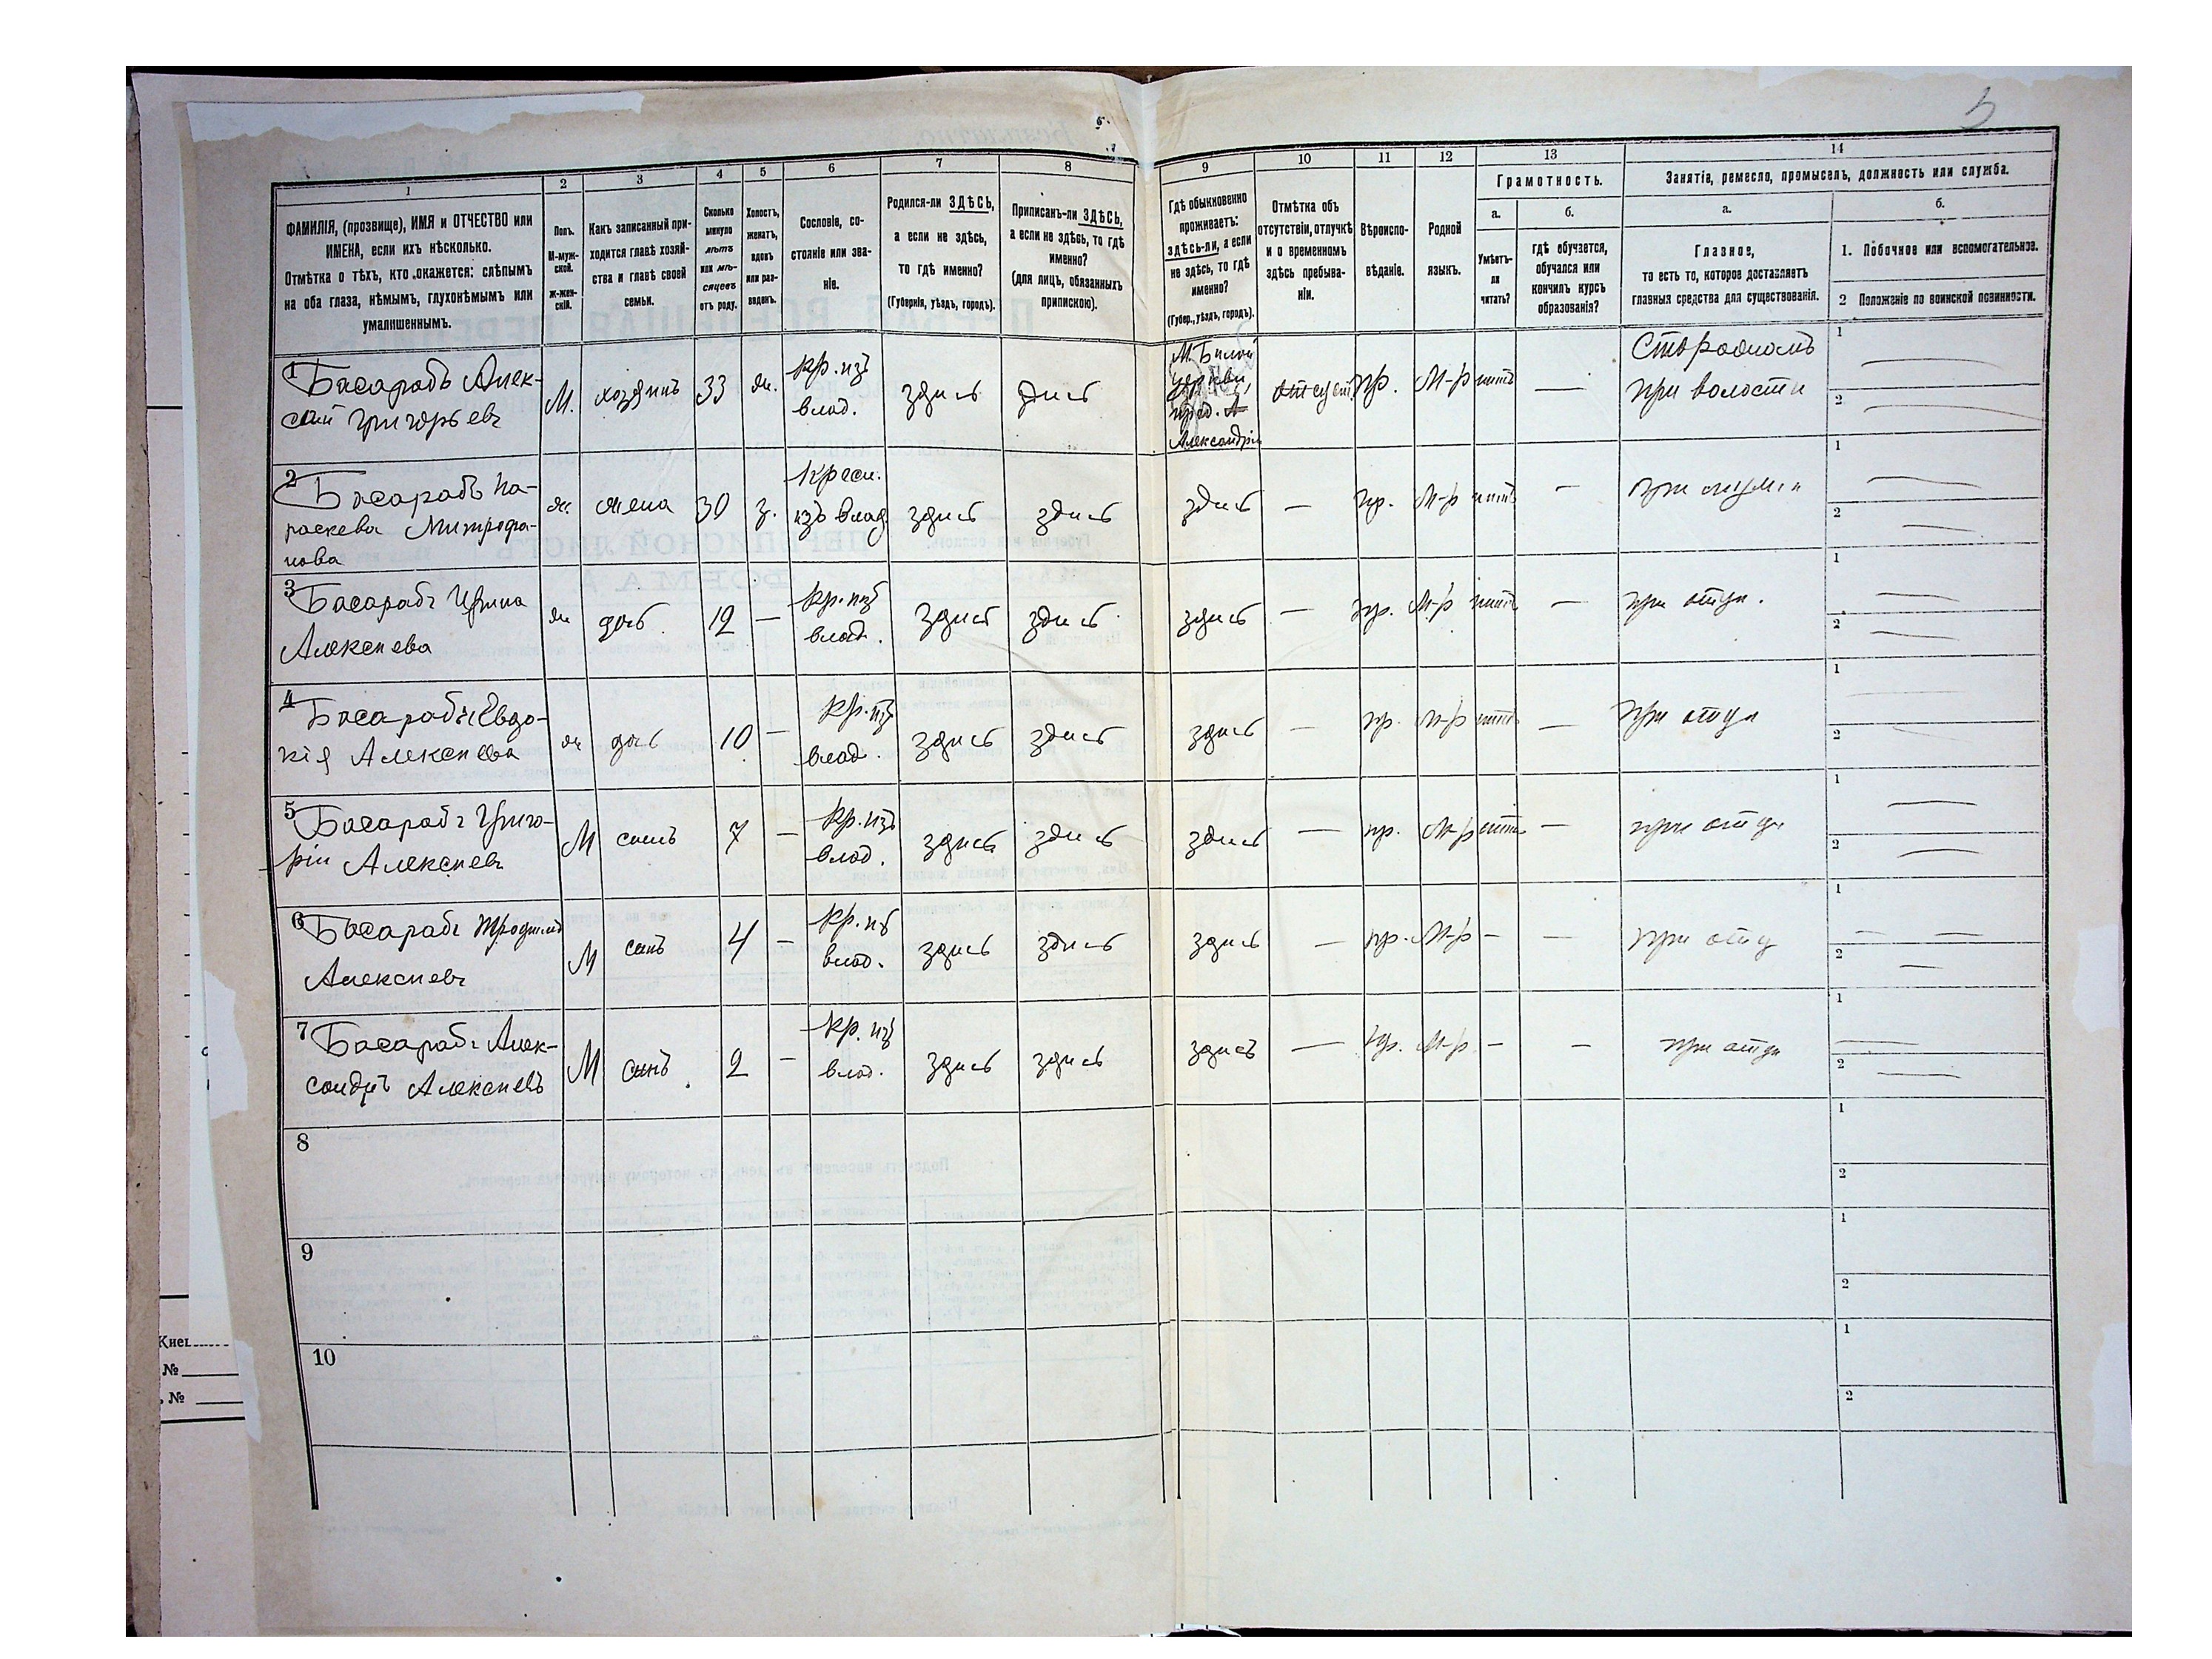 5
1 2 3 4 5 6 7 8 9 10 11 12 13 14
ФАМИЛІЯ, (прозвище), ИМЯ и ОТЧЕСТВО или
ИМЕНА, если ихъ нѣсколько.
Отмѣтка о тѣхъ, кто окажется: слѣпымъ
на оба глаза, нѣмымъ, глухонѣмымъ или
умалишеннымъ.
Полъ.
М-муж-
ской.
ж-жен-
скій.
Какъ записанный при-
ходится главѣ хозяй-
ства и главѣ своей
семьи.
Сколько
минуло
лѣтъ
или мѣ-
сяцевъ
отъ роду.
Холостъ,
женатъ,
вдовъ
или раз-
веденъ.
Сословіе, со-
стояніе или зва-
ніе.
Родился-ли ЗДѢСЬ,
а если не здѣсь,
то гдѣ именно?
(Губернія, уѣздъ, городъ).
Приписанъ-ли ЗДѢСЬ,
а если не здѣсь, то гдѣ
именно?
(для лицъ, обязанныхъ
припискою).
Гдѣ обыкновенно
проживаетъ:
здѣсь-ли, а если
не здѣсь, то гдѣ
именно?
(Губер., уѣздъ, городъ).
Отмѣтка объ
отсутствіи, отлучкѣ
и о временномъ
здѣсь пребыва-
ніи.
Вѣроиспо-
вѣданіе.
Родной
языкъ.
Грамотность.
а.
Умѣетъ-
ли
читать?
б.
гдѣ обучается,
обучался или
кончилъ курсъ
образованія?
Занятія, ремесло, промыселъ, должность или служба.
а.
Главное,
то есть то, которое доставляетъ
главныя средства для существованія.
б.
1. Побочное или вспомогательное.
2 Положеніе по воинской повинности.
1 Басарабъ Алек-
сѣй Григорьевъ
М. хозяинъ 33 ж. кр. изъ
влад. здись здись
М. Билой
церкви,
пред. А
Александрія
отсут. пр. М-р нитъ —
Сторожомъ
при волости
1 —
2 —
2 Басарабъ Па-
раскева Митрофа-
нова
ж. жена 30 з. Крест.
изъ влад. здись здись здись — пр. М-р нитъ — при мужи
1 —
2 —
3 Басарабъ Ирина
Алексиева
ж дочь 12 — кр. изъ
влад. здись здись здись — пр. М-р нитъ — при отци.
1 —
2 —
4 Басарабъ Евдо-
кія Алексиева
ж дочь 10 — кр. изъ
влад. здись здись здись — пр. М-р нитъ — при отци
1 —
2 —
5 Басарабъ Григо-
рій Алексиевъ
М сынъ 7 — кр. изъ
влад. здись здись здись — пр. М-р нитъ — при отци
1 —
2 —
6 Басарабъ Трофимъ
Алексиевъ
М сынъ 4 — кр. изъ
влад. здись здись здись — пр. М-р — — при отци
1 — — —
2 —
7 Басарабъ Алек-
сандръ Алексиевъ
М сынъ 2 — кр. изъ
влад. здись здись здись — пр. М-р — — при отци
1 —
2 —
8
1
2
9
1
2
10
1
2
№
№